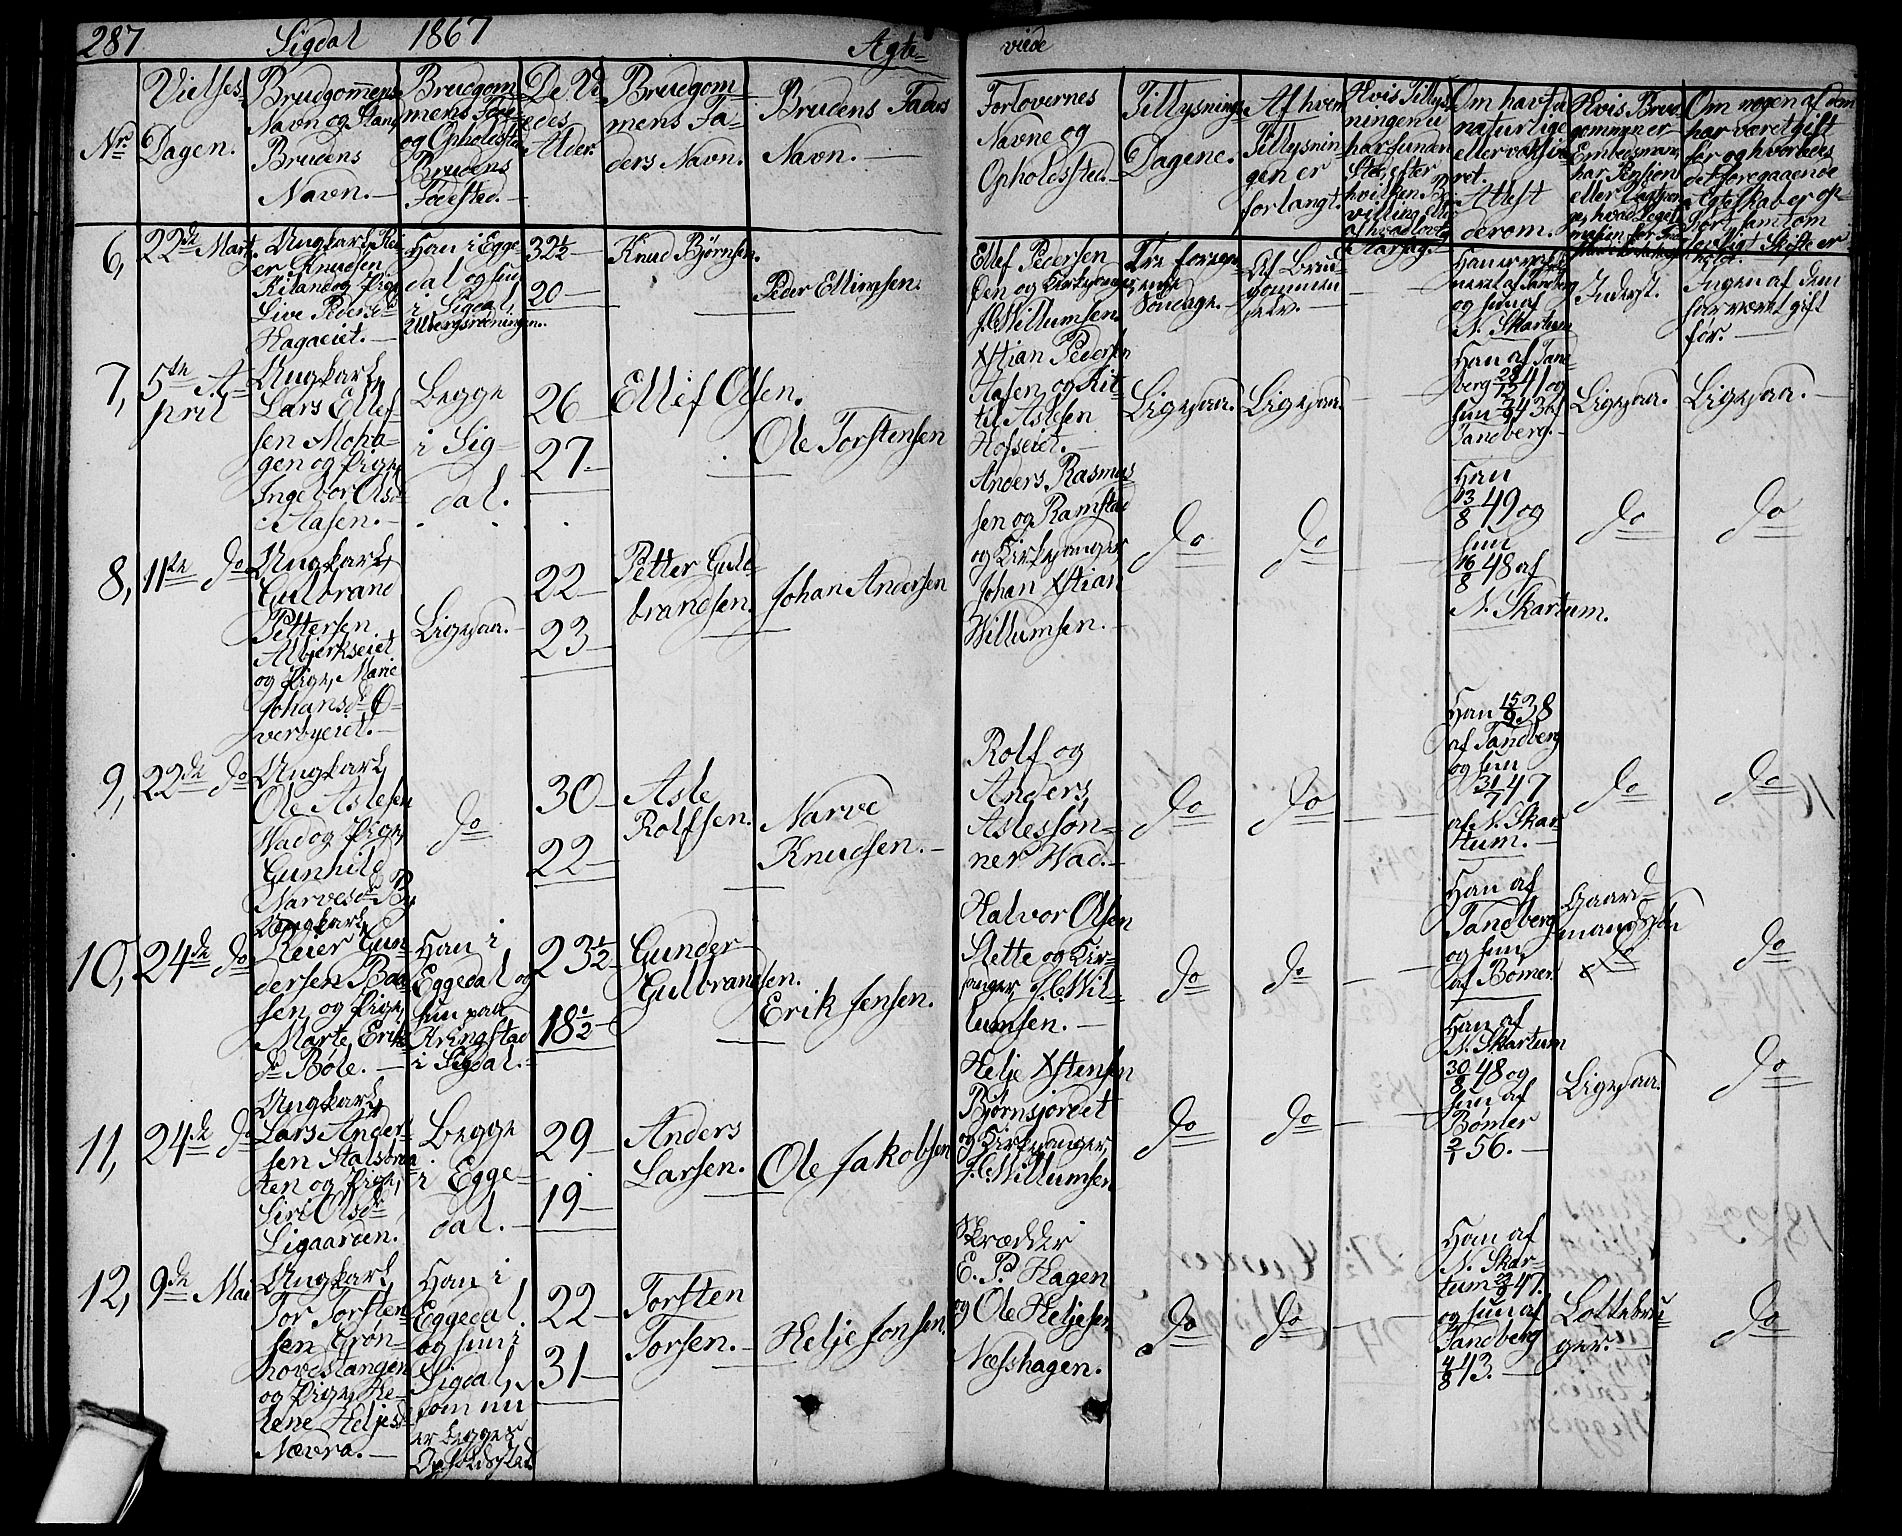 287 Sigdal 1867 Ægte- viede
No
Vielses-
Dagen.
Brudgommens
Navn og Stand
Brudens
Navn.
Brudgom-
mens Føde
og Opholdsste
Brudens
Fødested.
De Vi-
edes
Alder.
Brudgom-
mens Fa-
ders Navn.
Brudens Faders
Navn.
Forlovernes
Navne og
Opholdssted.
Tillysnings-
Dagene.
Af hvem
Tillysnin-
gen er
forlangt.
Hvis Tillys-
ningen ei
har funden
Sted, efter
hvilken Be-
villing eller
Om havt de
naturlige
eller vaccine-
ret.
Attest
derom.
Hvis Brud-
gommen er
Embedsmand,
har Pension
Om nogen af dem
har været gift
før og hvorledes
det foregaaende
Ægteskab er op-
hørt samt om
lovligt Skifte er
holdt.
6, 22de Mart.
Ungkarl Rei-
er Knudsen
Kiland og Pige
Live Pedersd
Hagaeiet.
Han i Egge-
dal og hun
i Sigdal,
32½
20
Knud Bjørnsen.
Peder Ellingsen.
Ellef Pedersen
Øen og Kirkesanger
J. C. Willumsen.
Tre foregaa-
ende
Søndage.
Af Brud-
gommen
selv.
og hun af
N. Skartum
Inderst.
Ingen af dem
har været gift
før.
7, 5te A-
pril
Ungkarl
Lars Ellef-
sen Moha-
gen og Pige
Ingebor Olsd
Aasen.
Begge
i Sig-
dal.
26
27
Ellif Olsen.
Ole Torstensen
Xstian Pedersen
Aasen og Kit-
til Aslesen
Hofseiet.
Ligesaa.
Ligesaa.
Han af Tand-
berg 28/12 41 og
Tandberg.
Ligesaa.
Ligesaa.
8, 11te do
Ungkarl
Gulbrand
Pettersen
Albjerkseiet
og Pige, Marie
Johansd O-
verbyeiet.
Ligesaa.
22
23
Petter Guld-
brandsen.
Johan Andersen
Anders Rasmus
sen og Ramstad
og Kirkesanger
Johan Xstian
Willumsen.
do
do
Han
13/8 49 og
hun
16/8 48 af
N. Skartum.
do
do
9, 22de do
Ungkarl
Ole Aslesen
Wad og Pige
Gunhild
Narvesd By
do
30
22
Asle
Rolfsen.
Narve
Knudsen.
Rolf og
Anders
Aslessøn-
ner Wad.
do
do
Han 15/9 38
af Tandberg
og hun
31/7 47
af N. Skar-
tum.
do
do
10, 24de do
Ungkarl
Reier Gun-
dersen Baa-
sen og Pige
Marte Eriks
d Bøle.
Han i
Eggedal og
hun paa
Kringstad
i Sigdal.
23½
18½
Gunder
Gulbrandsen.
Erik Jensen.
Halvor Olsen
Slette og Kir-
sanger J. C. Wil-
lumsen.
do
do
Han af
Tandberg
og hun
af Bømer.
Gaard-
mandssøn
do
11, 24de do
Ungkarl
Lars Ander-
sen Stalsbra-
ten og Pige,
Siri Olsd
Ligaarden.
Begge
i Egge-
dal.
29
19
Anders
Larsen.
Ole Jakobsen
Helje Xstensen
Bjørnsjordet
og Kirkesanger
J. C. Willumsen
do
do
Han af
N. Skartum
30/8 48 og
hun af
Bømer
2/1 56.
Ligesaa.
do
12, 9de Mai
Ungkarl
Tor Torsten-
sen Grøn-
hovdstangen
og Pige, He-
lene Heljesd
Nævra.
Han i
Eggedal
og hun i
Sigdal,
som nu
er begges
Opholdssted
22
31
Torsten
Torsen.
Helje Jonsen.
Skrædder
E. P. Hagen
og Ole Heljesen
Næsshagen.
do
do
Han af
N. Skar-
tum 22/9 47.
og hun af
Tandberg
4/8 43.
Lottebru-
ger.
do